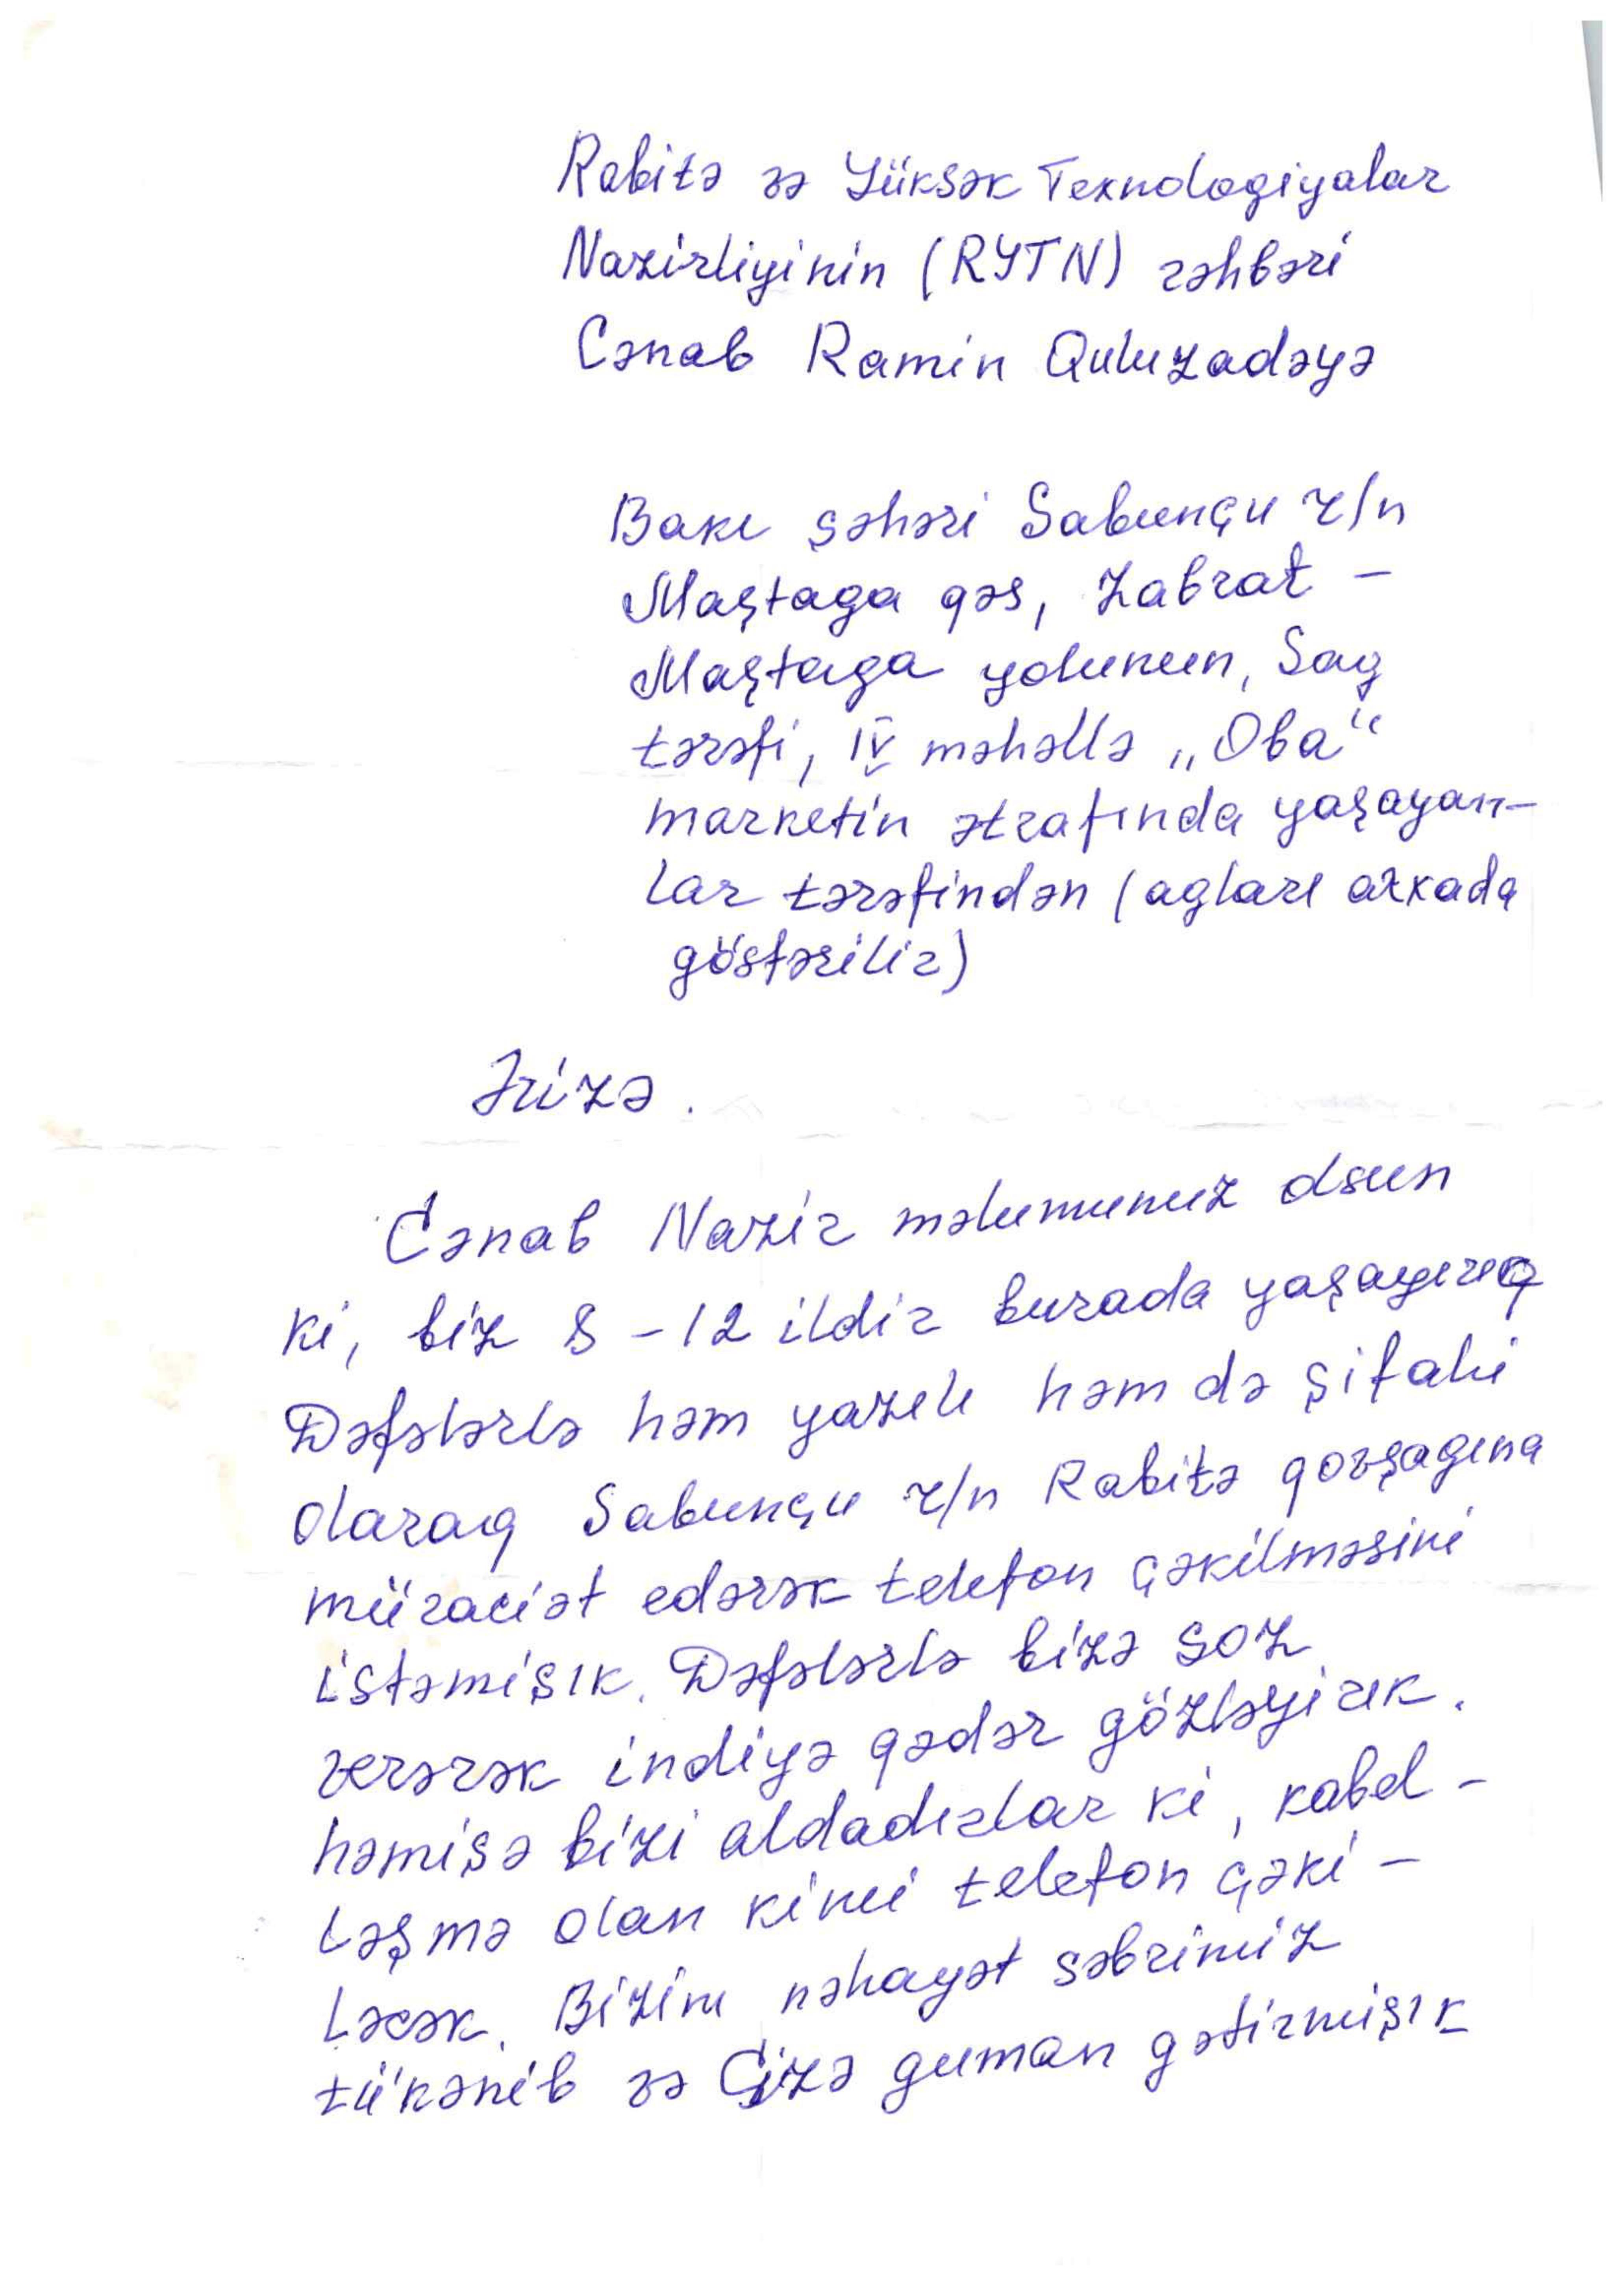 Rabitə və Yüksək Texnologiyalar
Nazirliyinin (RYTN) rəhbəri
Cənab Ramin Quluzadəyə
Bakı şəhəri Sabunçu r/n
Maştaga qəs, Zabrat –
Maştaga yolunun, Sag
tərəfi, IV məhəllə „Oba“
marketin ətrafında yaşayan-
lar tərəfindən (aglarl arxada
göstərilir)
Ərizə.
Cənab Nazir məlumunuz olsun
ki, biz 8 – 12 ildir burada yaşayırıq
Dəfələrlə həm yazılı həm də şifahi
olaraq Sabunçu r/n Rabitə qovşagına
müraciət edərək telefon çəkilməsini
istəmişık. Dəfələrlə bizə söz
verərək indiyə qədər gözləyirık.
həmişə bizi aldadırlar ki, kabel –
ləşmə olan kimi telefon çəki –
ləcək. Bizim nəhayət səbrimiz
tükənib və Sizə guman gətirmişık